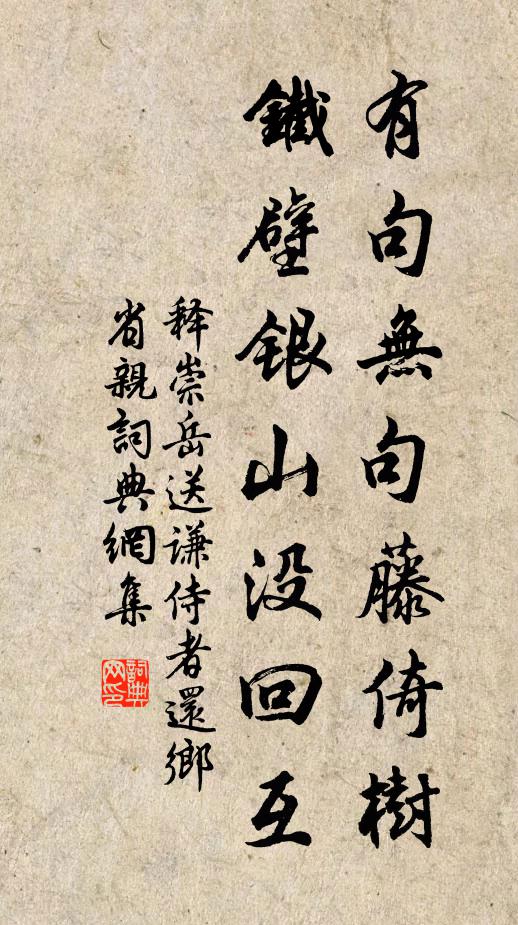 有句無句藤倚樹
鐵壁銀山没回互
释崇岳送谦侍者還鄉
省親詞典網集
詞典网印